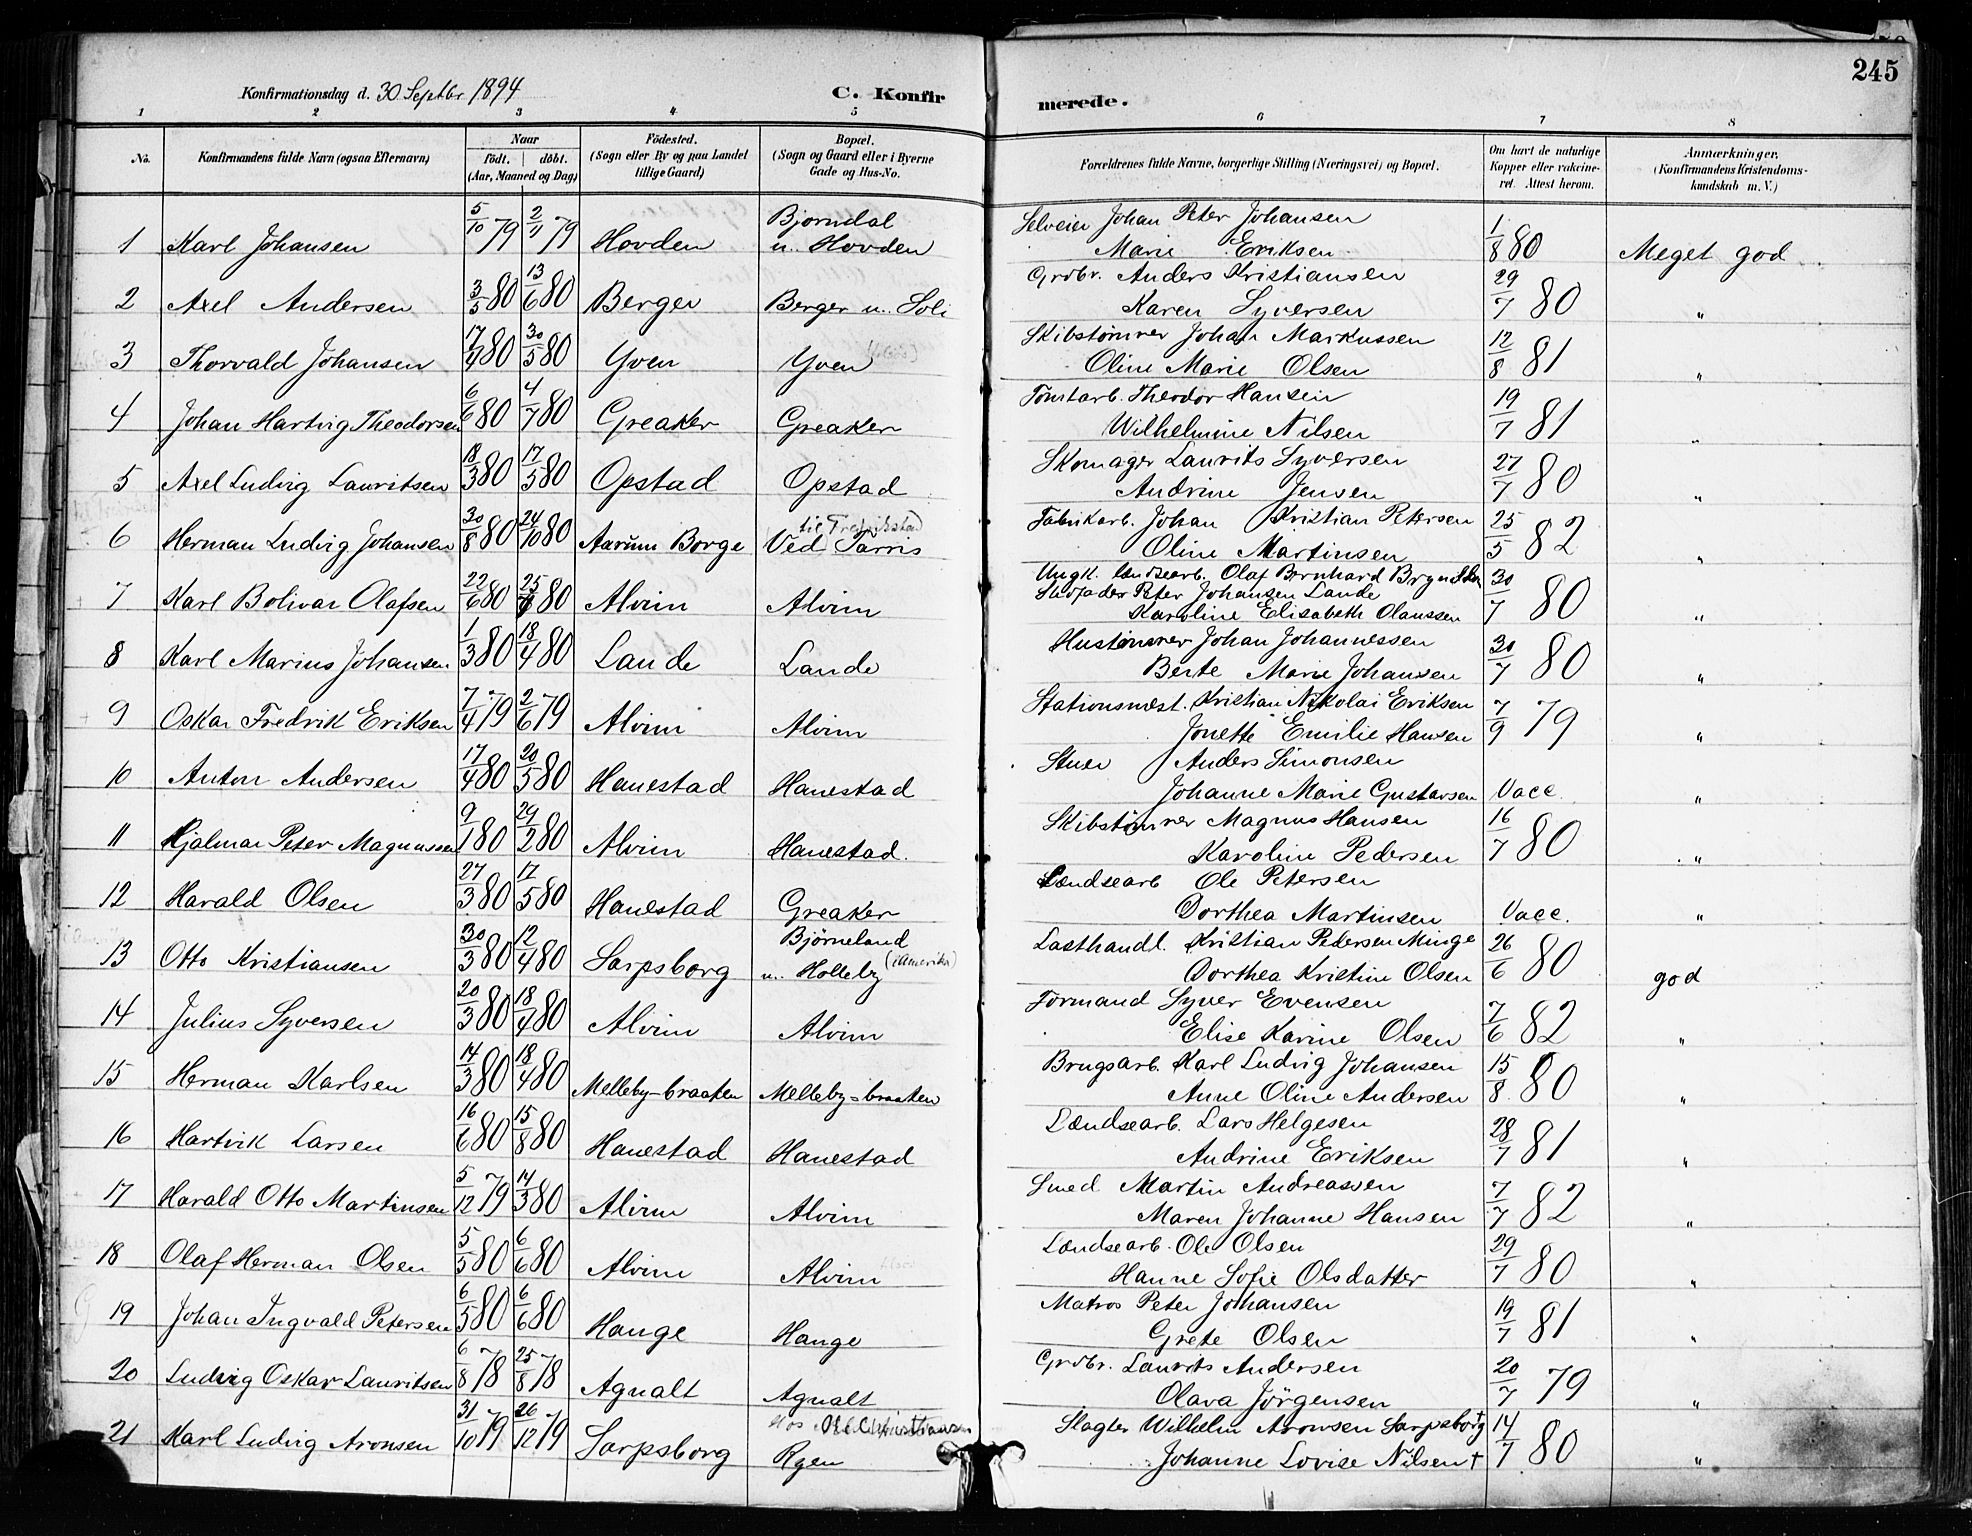 245
Konfirmationsdag d. 30 Septbr 1894
C. Konfirmerede.
1 2 3 4 5 6 7 8
No. | Konfirmandens fulde Navn (ogsaa Efternavn) | Naar født. | døbt. (Aar, Maaned og Dag) | Fødested. (Sogn eller By og paa Landet tillige Gaard) | Bopæl. (Sogn og Gaard eller i Byerne Gade og Hus-No. | Forældrenes fulde Navne, borgerlige Stilling (Næringsvei) og Bopæl. | Om havt de naturlige Kopper eller vakcineret. Attest herom. | Anmærkninger. (Konfirmandens Kristendomskundskab m. V.)
1 Karl Johansen 5/10 79 2/11 79 Hovden Bjørndal u. Hovden Selveier Johan Peter Johansen
Marie Eriksen 1/8 80 Meget god
2 Axel Andersen 3/5 80 13/6 80 Berger Berger u. Soli Grdbr. Anders Kristiansen
Karen Syversen 29/7 80 "
3 Thorvald Johansen 17/4 80 30/5 80 Yven Yven Skibstømrer Johan Markussen
Oline Marie Olsen 12/8 81 "
4 Johan Hartvig Theodorsen 6/6 80 4/7 80 Greaker Greaker Tomtarb. Theodor Hansen
Wilhelmine Nilsen 19/7 81 "
5 Axel Ludvig Lauritsen 18/3 80 17/5 80 Opstad Opstad Skomager Laurits Syversen
Andrine Jensen 27/7 80 "
6 Herman Ludvig Johansen 30/8 80 24/10 80 Aarum Borge Ved Tarris til Fredrikstad Fabrikarb. Johan Kristian Petersen
Oline Martinsen 25/5 82 "
7 Karl Bolivar Olafsen 22/6 80 25/ 80 Alvim Alvim Ungk. Lændsearb. Olaf Bernhard
Stedfader Peter Johansen Lande
Karoline Elisabeth Olaussen 30/7 80 "
8 Karl Marius Johansen 1/3 80 18/4 80 Lande Lande Hustømrer Johan Johannessen
Berte Marie Johansen 30/7 80 "
9 Oskar Fredrik Eriksen 7/4 79 2/6 79 Alvim Alvim Stationsmest. Kristian Nikolai Eriksen
Jonette Emilie Hansen 7/9 79 "
10 Anton Andersen 17/4 80 20/5 80 Hanestad Hanestad Stuer Anders Simonsen
Johanne Marie Gustavsen Vacc. "
11 Hjalmar Peter Magnussen 9/1 80 29/2 80 Alvim Hanestad. Skibstømrer Magnus Hansen
Karoline Pedersen 16/7 80 "
12 Harald Olsen 27/3 80 17/5 80 Hanestad Greaker Lændsearb Ole Petersen
Dorthea Martinsen Vacc. "
13 Otto Kristiansen 30/3 80 12/4 80 Sarpsborg Bjørneland u. Holleby (i Amerika) Lasthandl. Kristian Pedersen Minge
Dorthea Kristine Olsen 26/6 80 god
14 Julius Syversen 20/3 80 18/4 80 Alvim Alvim Formand Syver Evensen
Elise Karine Olsen 7/6 82 "
15 Herman Karlsen 14/3 80 18/4 80 Melleby-braaten Melleby-braaten Brugsarb. Karl Ludvig Johansen
Anne Oline Andersen 15/8 80 "
16 Hartvik Larsen 16/6 80 15/8 80 Hanestad Hanestad Lændsearb. Lars Helgesen
Andrine Eriksen 28/7 81 "
17 Harald Otto Martinsen 5/12 79 14/3 80 Alvim Alvim Smed Martin Andreassen
Maren Johanne Hansen 7/7 82 "
18 Olaf Herman Olsen 5/5 80 6/6 80 Alvim Alvim Lændsearb. Ole Olsen
Hanne Sofie Olsdatter 29/7 80 "
19 Johan Ingvald Petersen 6/5 80 6/6 80 Hauge Hauge Matros Peter Johansen
Grete Olsen 19/7 81 "
20 Ludvig Oskar Lauritsen 6/8 78 25/8 78 Agnalt Agnalt Grdbr. Laurits Andersen
Olava Jørgensen 20/7 79 "
21 Karl Ludvig Aronsen 31/10 79 26/12 79 Sarpsborg hos O.E. Christiansen Rgen Slagter Wilhelm Aronsen Sarpsborg
Johanne Lovise Nilsen † 14/7 80 "